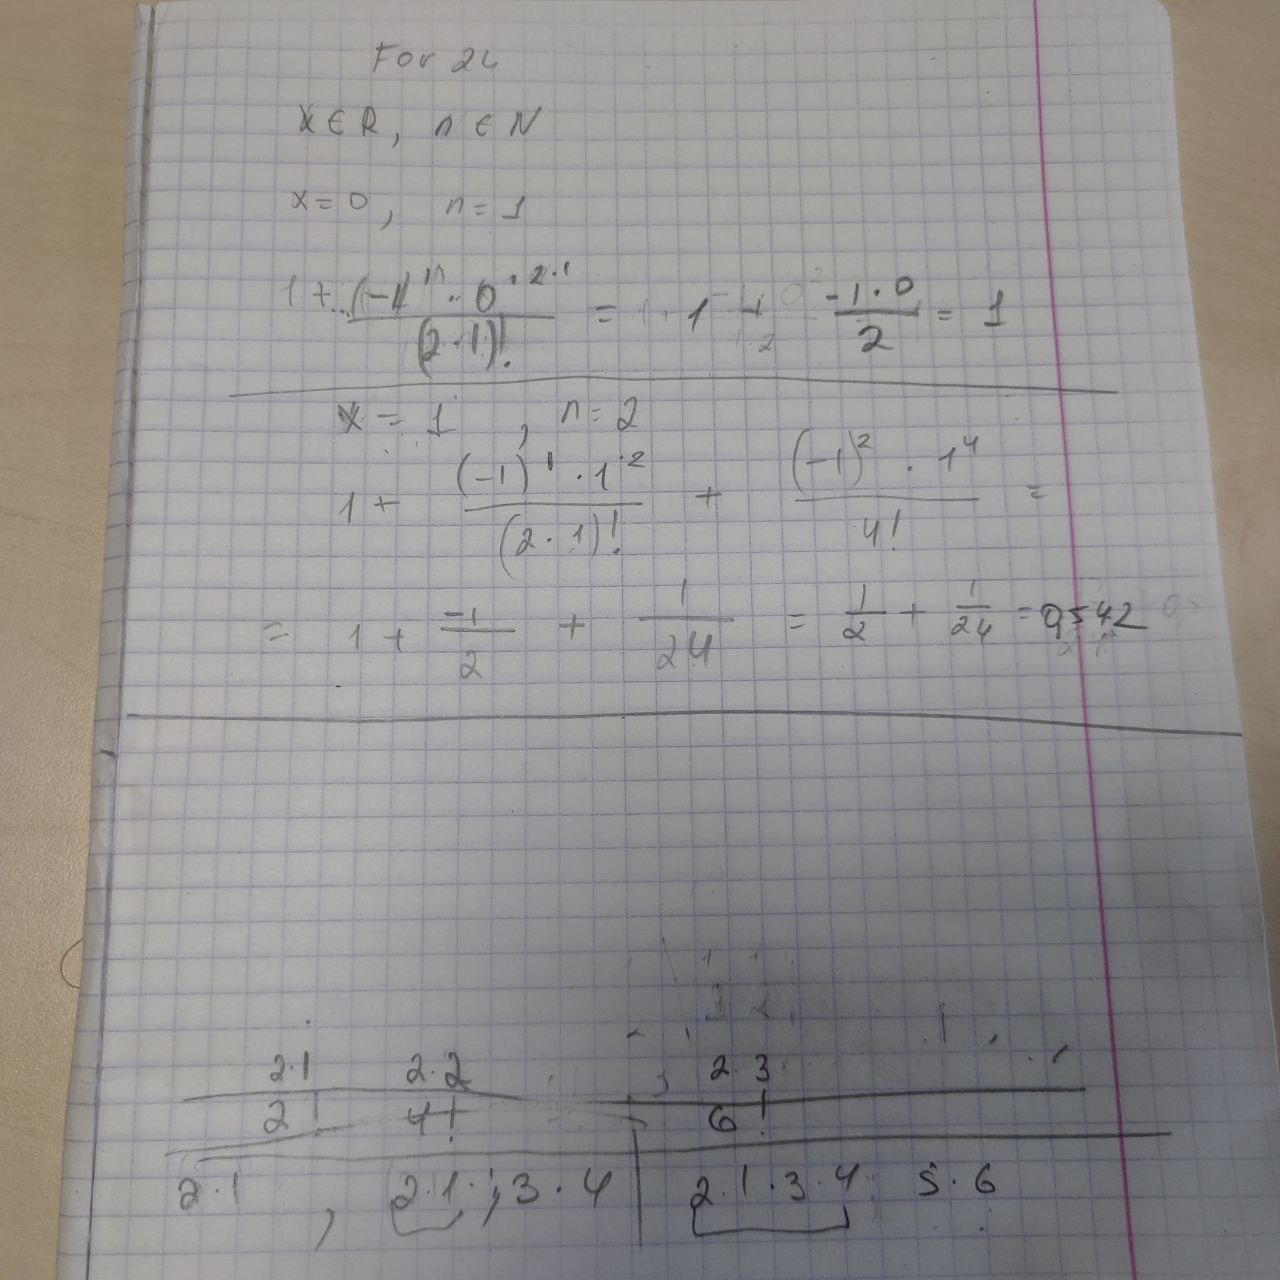 For 24
x ∈ R, n ∈ N
x = 0, n = 1
1 + (-1)¹ · 0^2·1 / (2·1)! = 1 -1·0 / 2 = 1
x = 1, n = 2
1 + (-1)¹ · 1² / (2·1)! + (-1)² · 1⁴ / 4! =
= 1 + -1/2 + 1/24 = 1/2 + 1/24 = 0,542
2·1 2·2 , 2·3
2! 4! 6!
2·1 , 2·1·,3·4 2·1·3·4 5·6